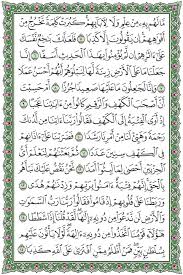 مَّا لَهُم بِهِۦ مِنْ عِلْمٍ وَلَا لِـَٔابَآئِهِمْ كَبُرَتْ كَلِمَةً تَخْرُجُ مِنْ
أَفْوَٰهِهِمْ إِن يَقُولُونَ إِلَّا كَذِبًا ٥ فَلَعَلَّكَ بَٰخِعٌ نَّفْسَكَ
عَلَىٰٓ ءَاثَٰرِهِمْ إِن لَّمْ يُؤْمِنُوا۟ بِهَٰذَا ٱلْحَدِيثِ أَسَفًا ٦ إِنَّا
جَعَلْنَا مَا عَلَى ٱلْأَرْضِ زِينَةً لَّهَا لِنَبْلُوَهُمْ أَيُّهُمْ أَحْسَنُ عَمَلًا
٧ وَإِنَّا لَجَٰعِلُونَ مَا عَلَيْهَا صَعِيدًا جُرُزًا ٨ أَمْ حَسِبْتَ
أَنَّ أَصْحَٰبَ ٱلْكَهْفِ وَٱلرَّقِيمِ كَانُوا۟ مِنْ ءَايَٰتِنَا عَجَبًا ٩
إِذْ أَوَى ٱلْفِتْيَةُ إِلَى ٱلْكَهْفِ فَقَالُوا۟ رَبَّنَآ ءَاتِنَا مِن لَّدُنكَ
رَحْمَةً وَهَيِّئْ لَنَا مِنْ أَمْرِنَا رَشَدًا ١٠ فَضَرَبْنَا عَلَىٰٓ ءَاذَانِهِمْ
فِى ٱلْكَهْفِ سِنِينَ عَدَدًا ١١ ثُمَّ بَعَثْنَٰهُمْ لِنَعْلَمَ أَىُّ
ٱلْحِزْبَيْنِ أَحْصَىٰ لِمَا لَبِثُوٓا۟ أَمَدًا ١٢ نَّحْنُ نَقُصُّ عَلَيْكَ نَبَأَهُم
بِٱلْحَقِّ إِنَّهُمْ فِتْيَةٌ ءَامَنُوا۟ بِرَبِّهِمْ وَزِدْنَٰهُمْ هُدًى ١٣
وَرَبَطْنَا عَلَىٰ قُلُوبِهِمْ إِذْ قَامُوا۟ فَقَالُوا۟ رَبُّنَا رَبُّ ٱلسَّمَٰوَٰتِ
وَٱلْأَرْضِ لَن نَّدْعُوَا۟ مِن دُونِهِۦٓ إِلَٰهًا لَّقَدْ قُلْنَآ إِذًا شَطَطًا ١٤
هَٰٓؤُلَآءِ قَوْمُنَا ٱتَّخَذُوا۟ مِن دُونِهِۦٓ ءَالِهَةً لَّوْلَا يَأْتُونَ عَلَيْهِم
بِسُلْطَٰنٍۭ بَيِّنٍ فَمَنْ أَظْلَمُ مِمَّنِ ٱفْتَرَىٰ عَلَى ٱللَّهِ كَذِبًا ١٥